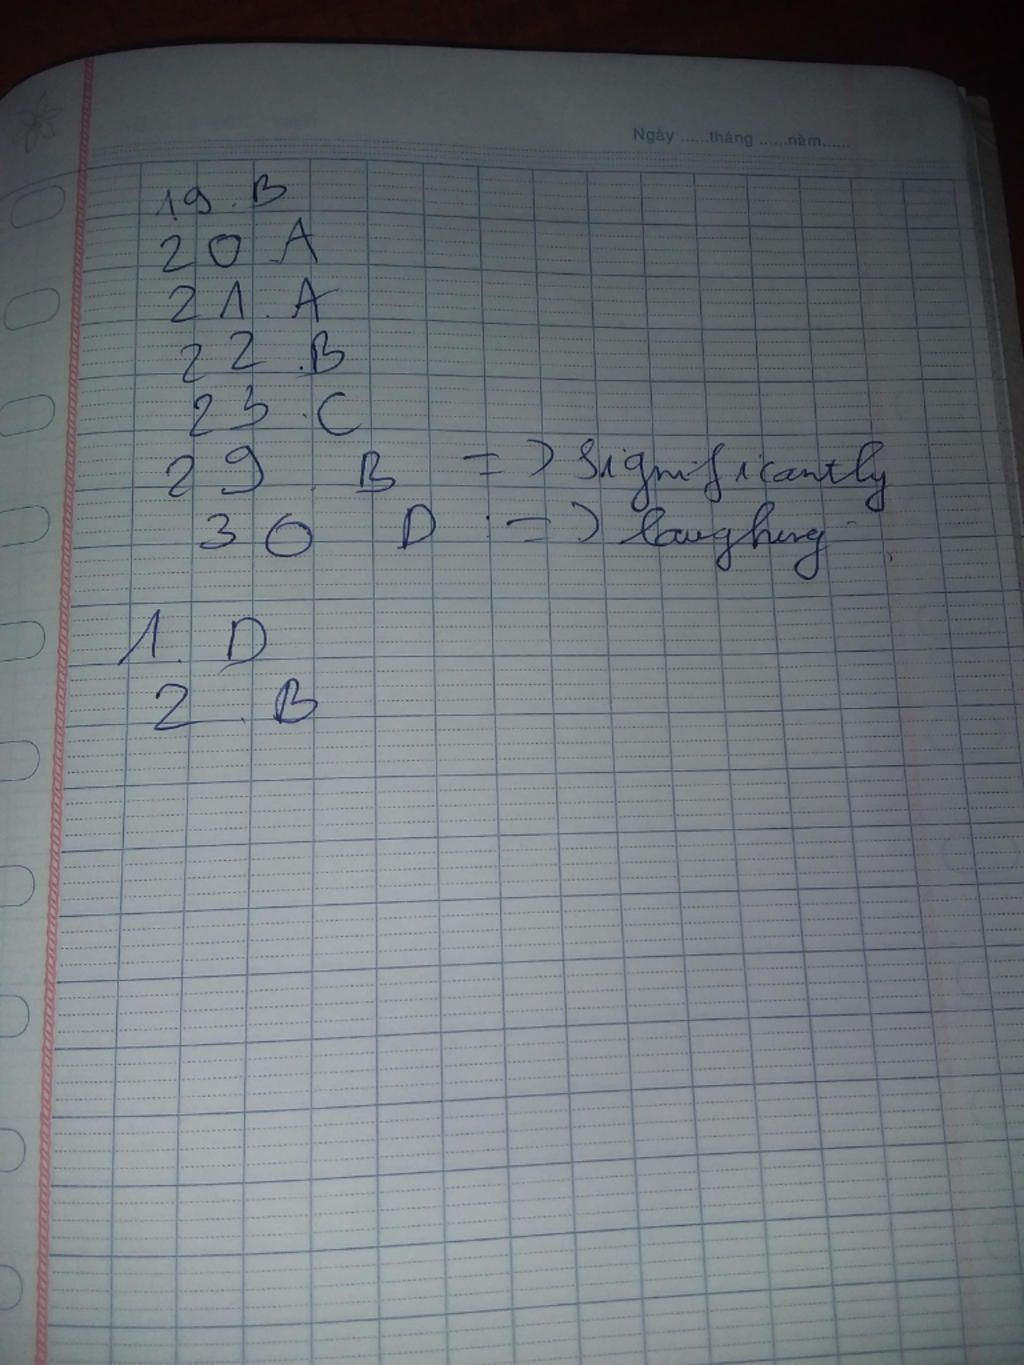 Ngày ......tháng ......năm......
19. B
20 A
21. A
22 .B
23 .C
29 . B => Significantly
30 D => laughing
1. D
2 . B